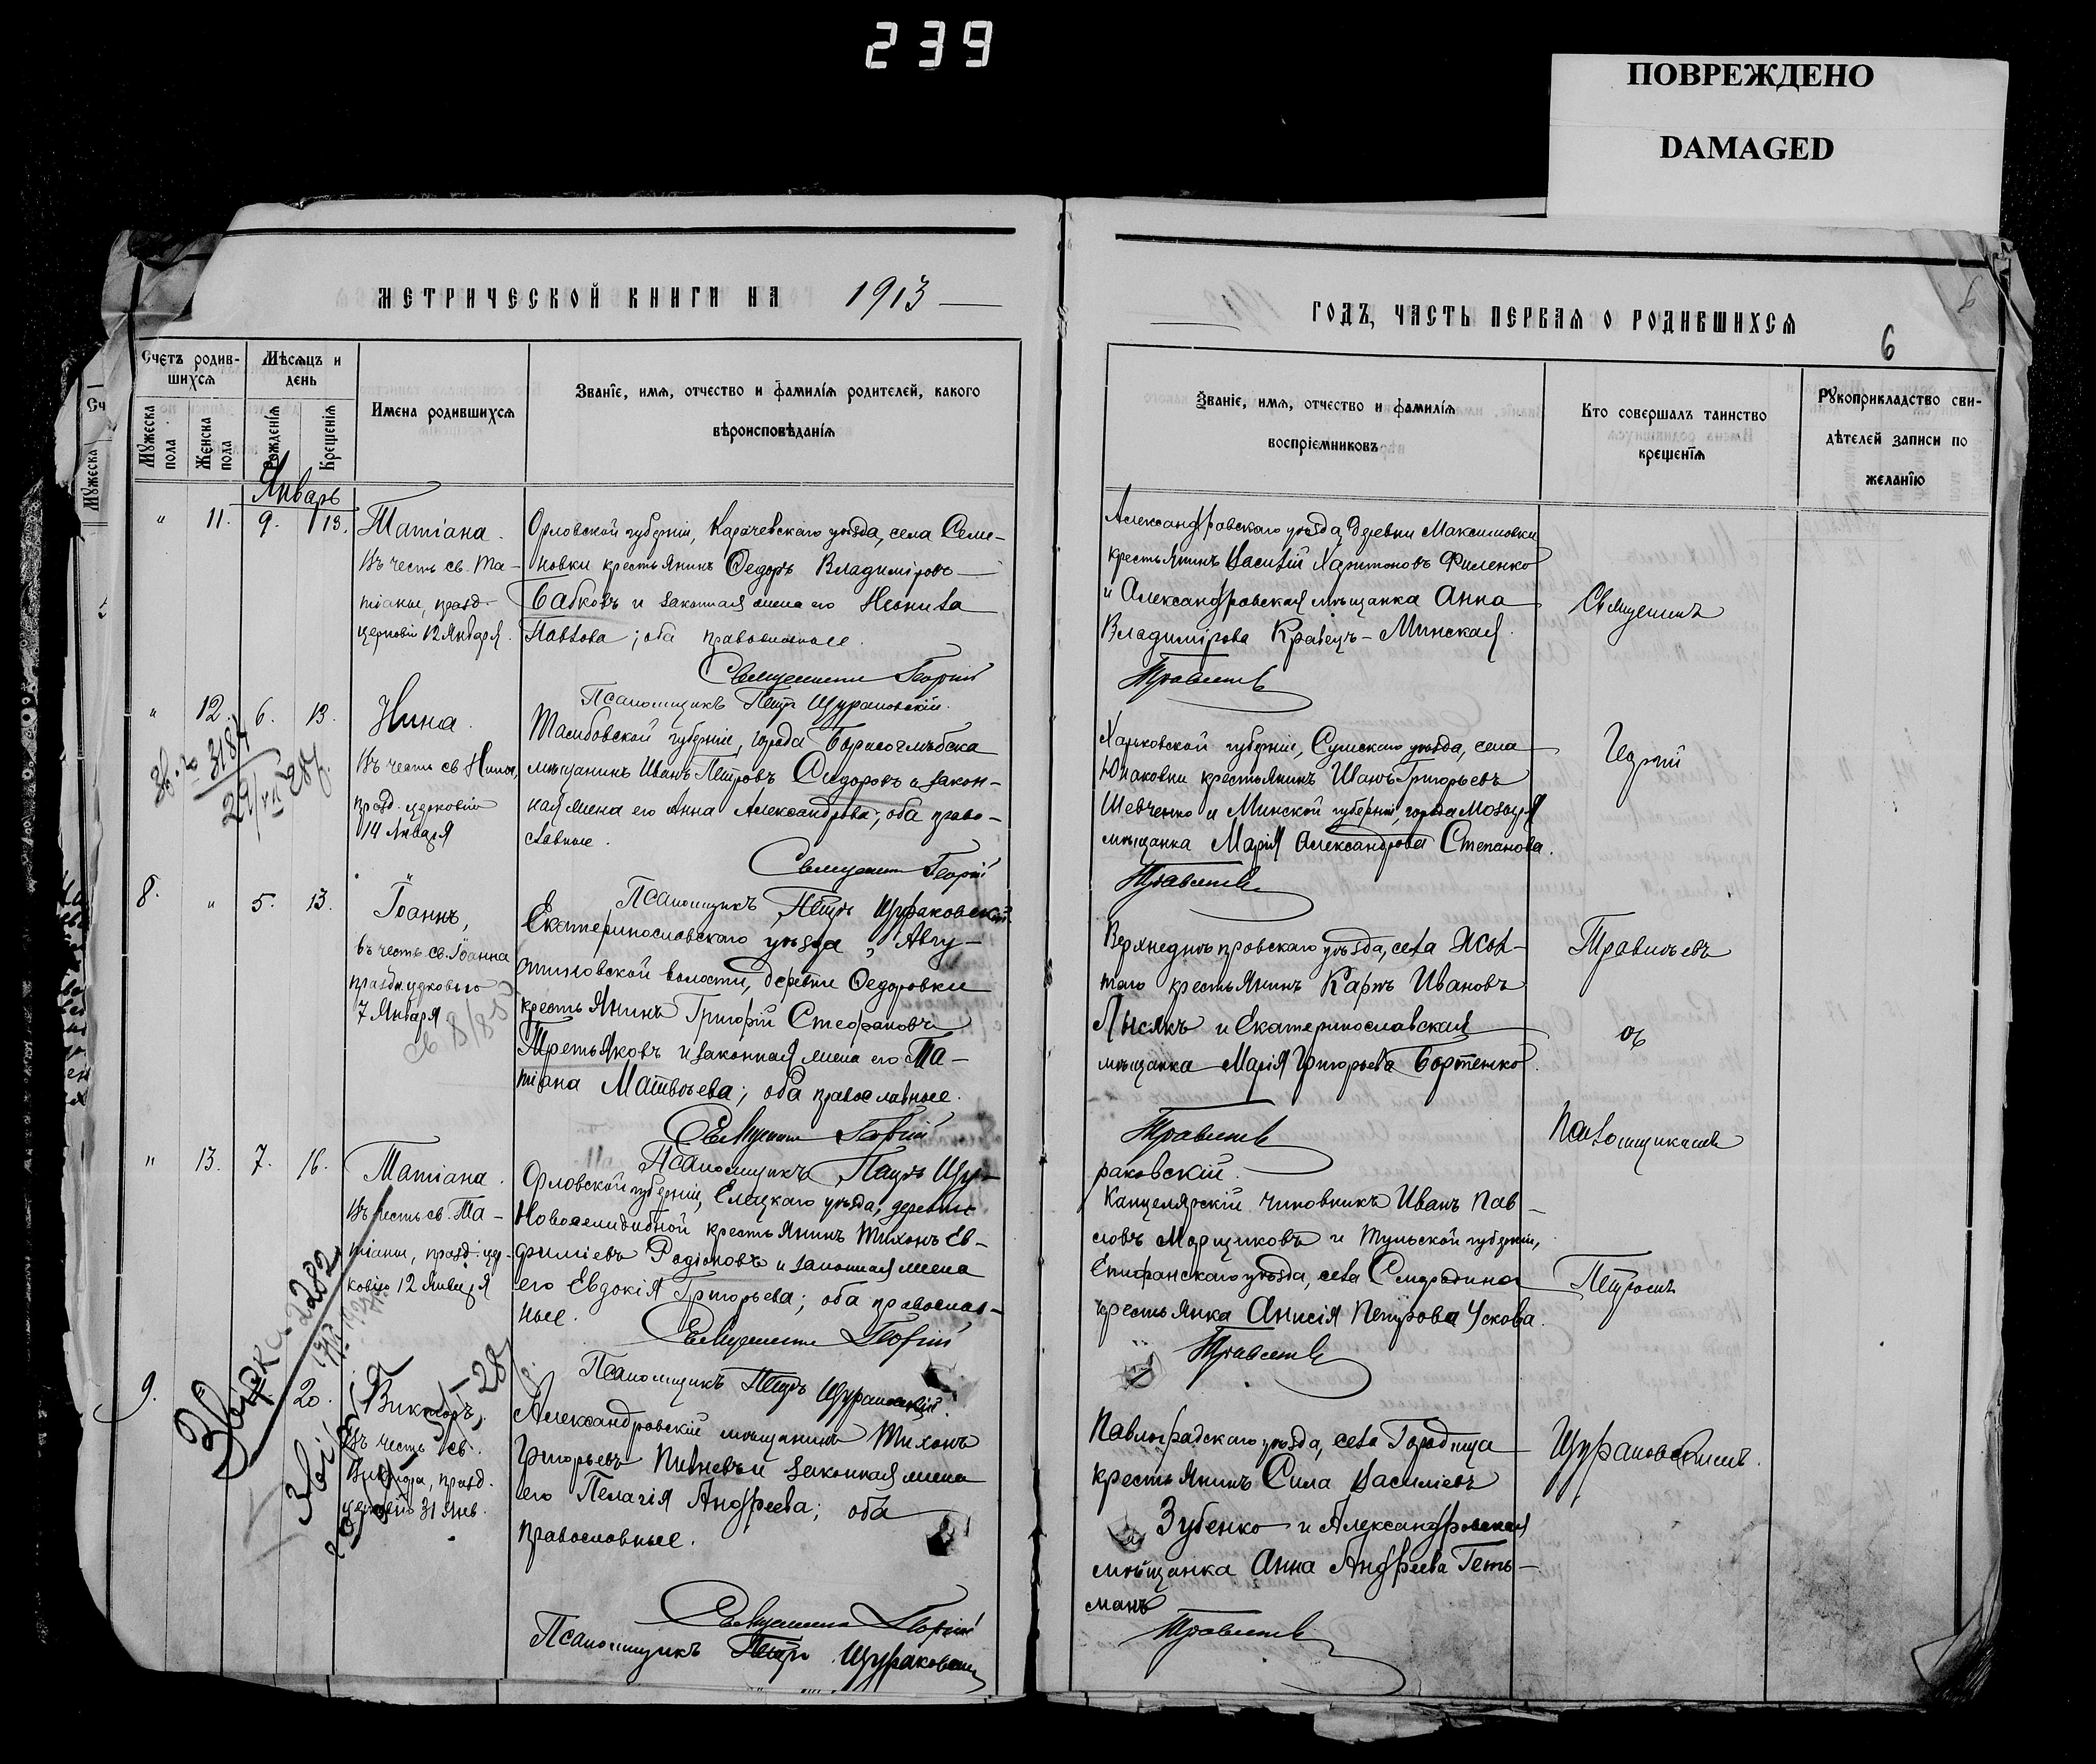 239
ПОВРЕЖДЕНО
DAMAGED
МЕТРИЧЕСКОЙ КНИГИ НА 1913
Счетъ родив-
шихся
Мѣсяцъ и
день
Мужеска
пола
Женска
пола
Рожденія
Крещенія
Имена родившихся
Званіе, имя, отчество и фамилія родителей, какого
вѣроисповѣданія
Январь
" 11. 9. 13.
Татіана.
Въ честь св. Та-
тіаны, празд.
церковію 12 Января.
Орловской губерніи, Карачевскаго уѣзда, села Семе-
новки крестьянинъ Ѳедоръ Владиміровъ
Бабковъ и законная жена его Неонила
Павлова; оба православные.
Священникъ Георгій
Псаломщикъ Петръ Щураковскій.
" 12. 6. 13.
Нина.
Въ честь св Нины,
празд. церковію
14 Января
Тамбовской губерніи, города Борисоглѣбска
мѣщанинъ Иванъ Петровъ Сидоровъ и закон-
ная жена его Анна Александрова; оба право-
славные.
Священникъ Георгій
Псаломщикъ Петръ Щураковскій
8. " 5. 13.
Іоаннъ,
въ честь св. Іоанна
праздн. церковію
7 Января
Екатеринославскаго уѣзда, Авгу-
стиновской волости, деревни Ѳедоровки
крестьянинъ Григорій Стефановъ
Третьяковъ и законная жена его Та-
тіана Матвѣева; оба православные.
Священникъ Георгій
Псаломщикъ Петръ Щу-
" 13. 7. 16.
Татіана.
Въ честь св. Та-
тіаны, празд. цер-
ковію 12 Января
Орловской губерніи, Елецкаго уѣзда, деревни
крестьянинъ Тихонъ Ев-
фиміевъ Родіоновъ и законная жена
его Евдокія Григорьева; оба православ-
ные.
Священникъ Георгій
Псаломщикъ Петръ Щураковскій
9. 20.
Викторъ,
Въ честь св.
Виктора, празд.
церковію 31 Янв.
Александровскій мѣщанинъ Тихонъ
Григорьевъ Пивневъ и законная жена
его Пелагія Андреева; оба
православные.
Священникъ Георгій
Псаломщикъ Петръ Щураковскій
ГОДЪ, ЧАСТЬ ПЕРВАЯ О РОДИВШИХСЯ
6
Званіе, имя, отчество и фамилія
воспріемниковъ
Кто совершалъ таинство
крещенія
Рукоприкладство сви-
дѣтелей записи по
желанію
Александровскаго уѣзда, деревни Максимовки
крестьянинъ Василій Харитоновъ Филенко
и Александровская мѣщанка Анна
Владимірова Кравецъ-Минская.
Травинъ
Харьковской губерніи, Сумскаго уѣзда, села
Юнаковки крестьянинъ Иванъ Григорьевъ
Шевченко и Минской губерніи, города Мозыря
мѣщанка Марія Александрова Степанова.
Верхнеднѣпровскаго уѣзда, села Жол-
таго крестьянинъ Карпъ Ивановъ
Лысякъ и Екатеринославская
мѣщанка Марія Григорьева Бортенко.
раковскій.
Канцелярскій чиновникъ Иванъ Пав-
ловъ Морщиковъ и Тульской губерніи,
Епифанскаго уѣзда, села Смородина
крестьянка Анисія Петрова Ускова.
Павлоградскаго уѣзда, села Городища
крестьянинъ Сила Васильевъ
Зубенко и Александровская
мѣщанка Анна Андреева Геть-
манъ
Священникъ
Георгій
съ
Псаломщикомъ
Петромъ
Щураковскимъ.